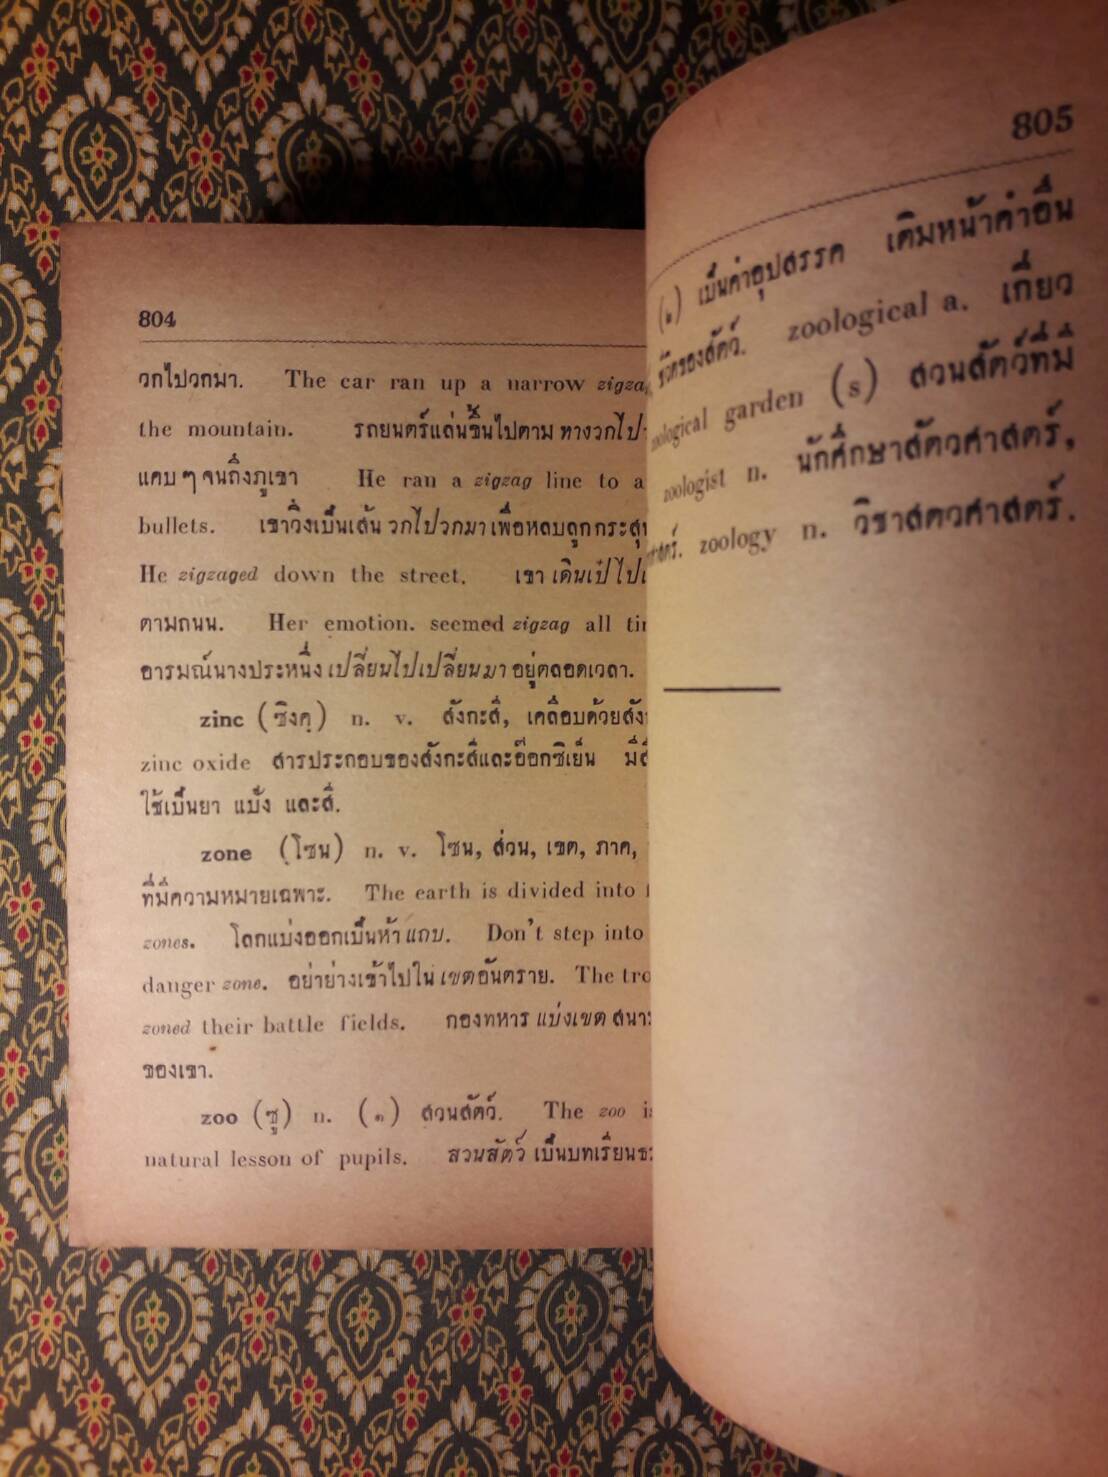 804
วกไปวกมา. The car ran up a narrow
the mountain. รถยนตร์แล่นขึ้นไปตาม
แคบๆจนถึงภูเขา He ran a zigzag line to
bullets. เขาวิ่งเป็นเส้น วกไปวกมา เพื่อหลบลูก
He zigzaged down the street. เขา เดินเป๋
ตามถนน. Her emotion. seemed zigzag all
อารมณ์นางประหนึ่ง เปลี่ยนไปเปลี่ยนมา อยู่ตลอดเวลา.
zinc (ซิงคฺ) n. v. สังกะสี, เคลือบด้วย
zinc oxide สารประกอบของสังกะสีและอ๊อกซิเย็น
ใช้เป็นยา แป้ง และสี.
zone (โซน) n. v. โซน, ส่วน, เขต, ภาค,
ที่มีความหมายเฉพาะ. The earth is divided into
zones. โลกแบ่งออกเป็นห้า แถบ. Don't step into
danger zone. อย่าย่างเข้าไปใน เขต อันตราย. The
zoned their battle fields. กองทหาร แบ่งเขต
ของเขา.
zoo (ซู) n. (๑) สวนสัตว์. The zoo
natural lesson of pupils. สวนสัตว์ เป็นบทเรียน
805
(๒) เป็นคำอุปสรรค เติมหน้าคำอื่น
ชีวิตของสัตว์. zoological a. เกี่ยว
garden (s) สวนสัตว์ที่มี
zoologist n. นักศึกษาสัตวศาสตร์,
zoology n. วิชาสัตวศาสตร์.